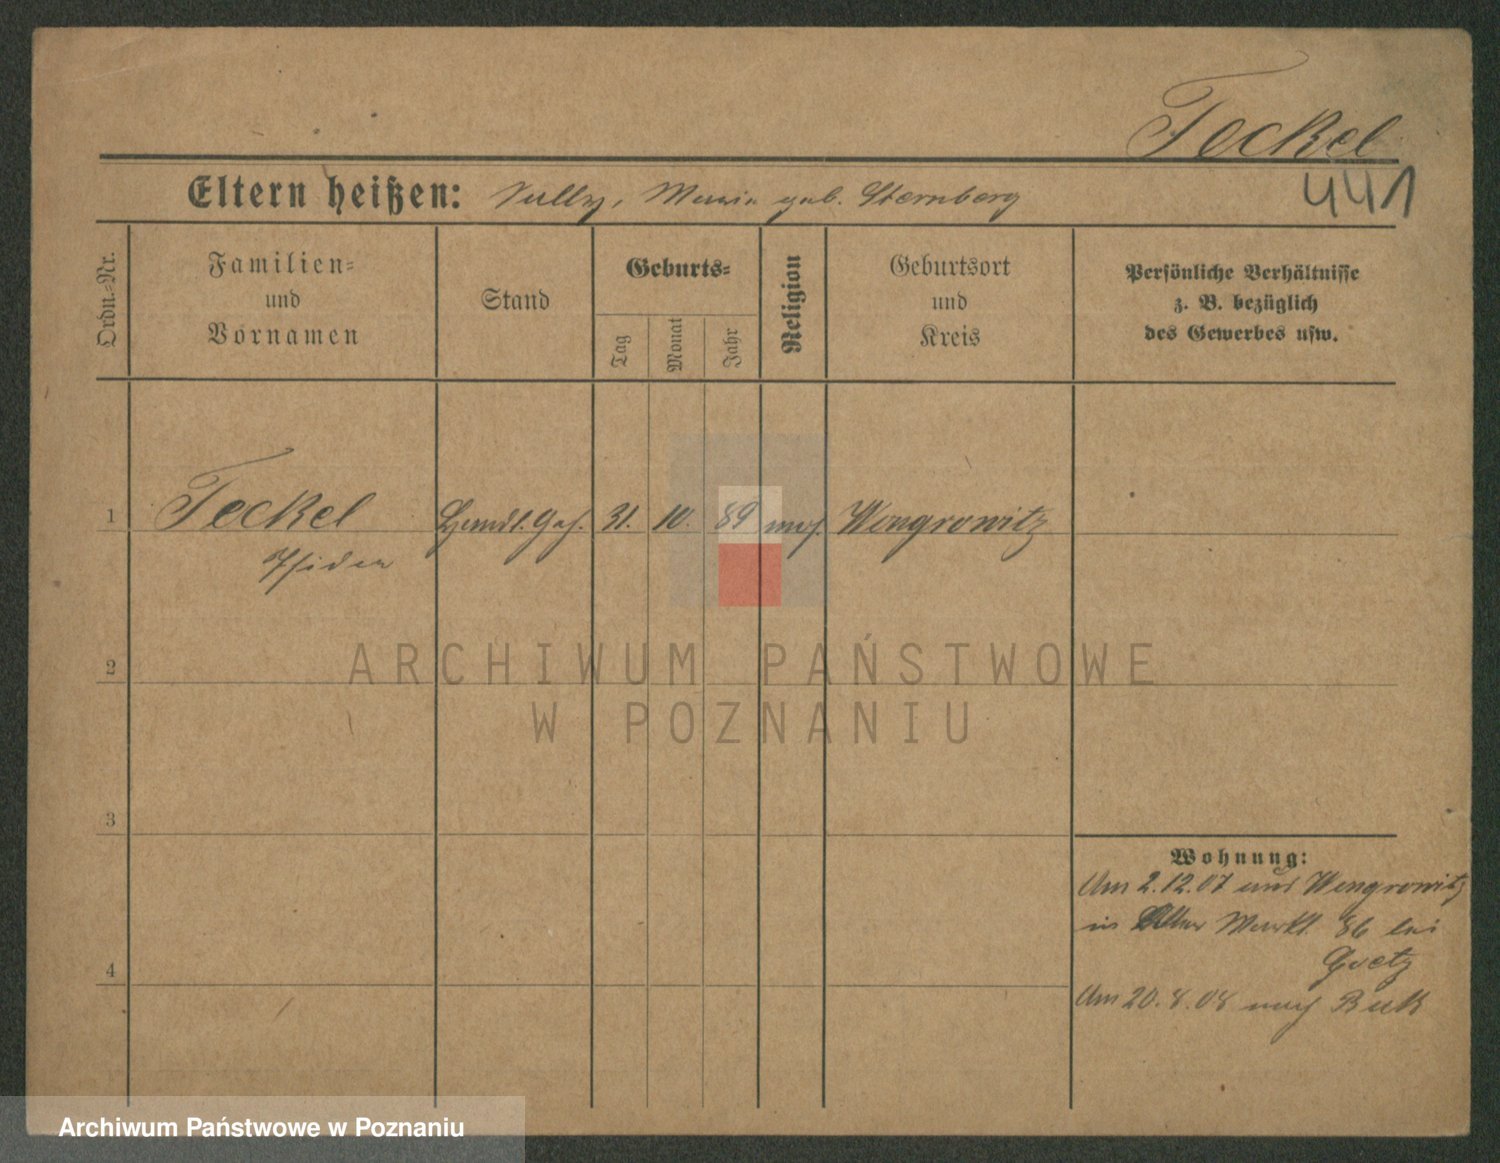 Teckel
441
Eltern heißen: Sally, Maria geb. Sternberg
Ordn.-Nr.
Familien-
und
Vornamen
Stand
Geburts-
Tag
Monat
Jahr
Religion
Geburtsort
und
Kreis
Persönliche Verhältnisse
z. B. bezüglich
des Gewerbes usw.
1 Teckel Handl. Geh. 31. 10. 89 mos. Wongrowitz
Isidor
2
3
4
Wohnung:
Am 2.12.07 aus Wongrowitz
in Alter Markt 86 bei
Goetz
Am 20.8.08 nach Buk
ARCHIWUM PAŃSTWOWE
W POZNANIU
Archiwum Państwowe w Poznaniu